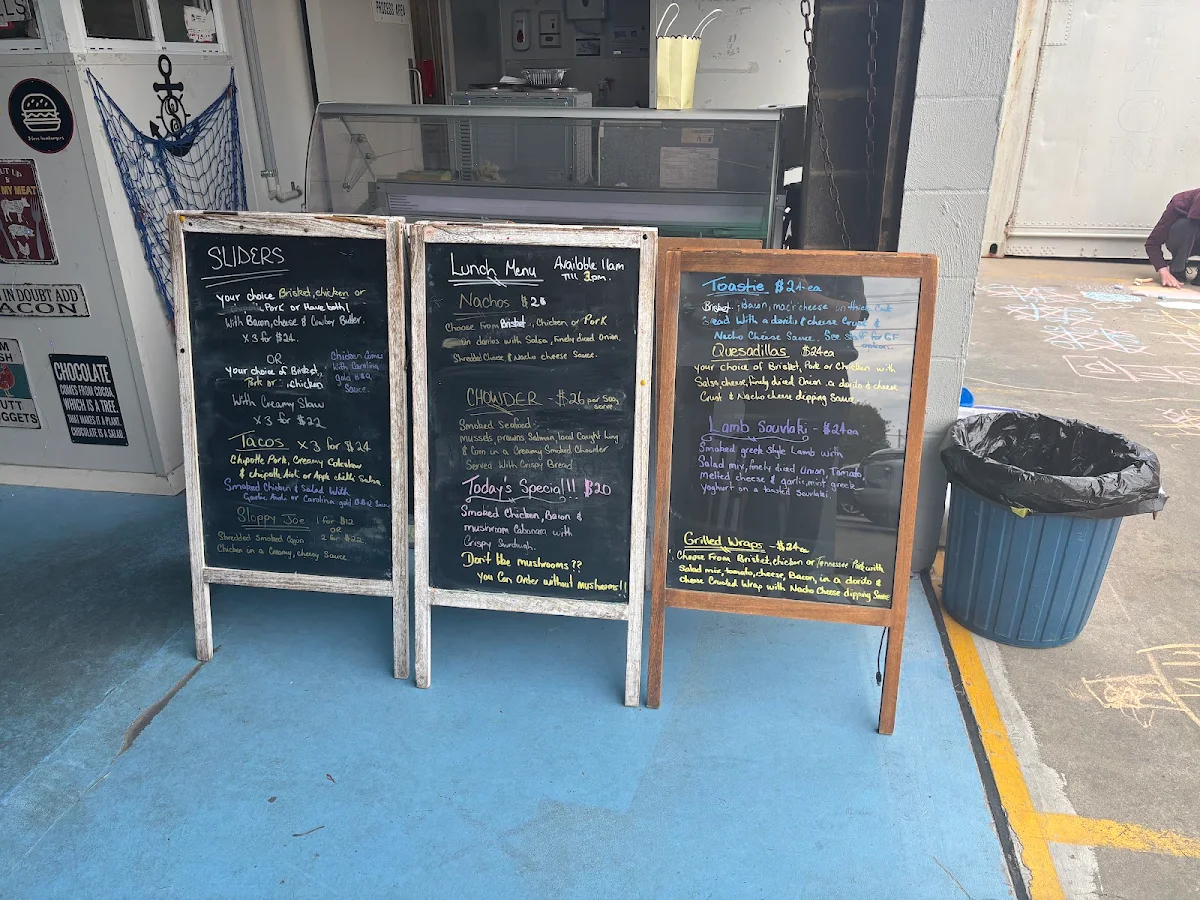 PROCESS AREA
MY MEAT
IN DOUBT ADD
BACON
CHOCOLATE
COMES FROM COCOA
WHICH IS A TREE.
THAT MAKES IT A PLANT.
CHOCOLATE IS SALAD.
SLIDERS
your choice Brisket, chicken or
Pork or Have both!
With Bacon, cheese & Cowboy Butter.
x 3 for $24.
OR
your choice of Brisket,
Pork or chicken
With Creamy Slaw
x 3 for $22
Chicken Comes
With Carolina
gold BBQ
Sauce
Tacos x 3 for $24
Chipotle Pork, Creamy
& chipotle Aioli or Apple chilli Salsa
Smoked Chicken & Salad With
Garlic Aioli or Carolina gold BBQ Sauce
Sloppy Joe 1 for $12
OR
2 for $22
Shredded Smoked Cajun
Chicken in a Creamy, cheesy Sauce
Lunch Menu
Available 11am
Till 3pm.
Nachos $26
Choose From Brisket, Chicken or Pork
on doritos with Salsa, Finely diced Onion,
Shredded Cheese & Nacho cheese Sauce.
CHOWDER - $26 per 500g
serve
Smoked Seafood -
mussels prawns Salmon, local Caught Ling
& Corn in a Creamy Smoked Chowder
Served With Crispy Bread
Today's Special!! $20
Smoked Chicken, Bacon &
mushroom Cabonara with
Crispy Sourdough.
Don't like mushrooms??
you Can Order without mushrooms!!
Toastie $24-ea
Brisket, Bacon, mac n cheese on thick Cut
Bread With a dorito & cheese Crust &
Nacho Cheese Sauce. See Staff for GF
option.
Quesadillas $24ea
your choice of Brisket, Pork or Chicken with
Salsa, cheese, finely diced Onion a dorito & cheese
Crust & Nacho cheese dipping Sauce.
Lamb Souvlaki - $24ea
Smoked greek Style Lamb with
Salad mix, finely diced Onion, Tomato,
melted cheese & garlic, mint, greek
yoghurt on a toasted Souvlaki.
Grilled Wraps - $24ea
Choose From Brisket, chicken or Tennessee Pork with
Salad mix, tomato, cheese, Bacon, in a dorito &
cheese Crusted Wrap with Nacho Cheese dipping Sauce